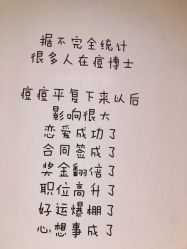 据不完全统计
很多人在痘博士
痘痘平复下来以后
影响很大
恋爱成功了
合同签成了
奖金翻倍了
职位高升了
好运爆棚了
心想事成了